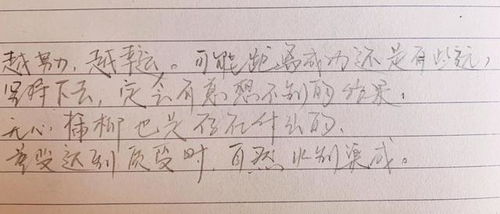 越努力,越幸运。可能距离成功还是有些远,
坚持下去,定会有意想不到的结果.
无心插柳也是存在什么的.
量变达到质变时,自然水到渠成。